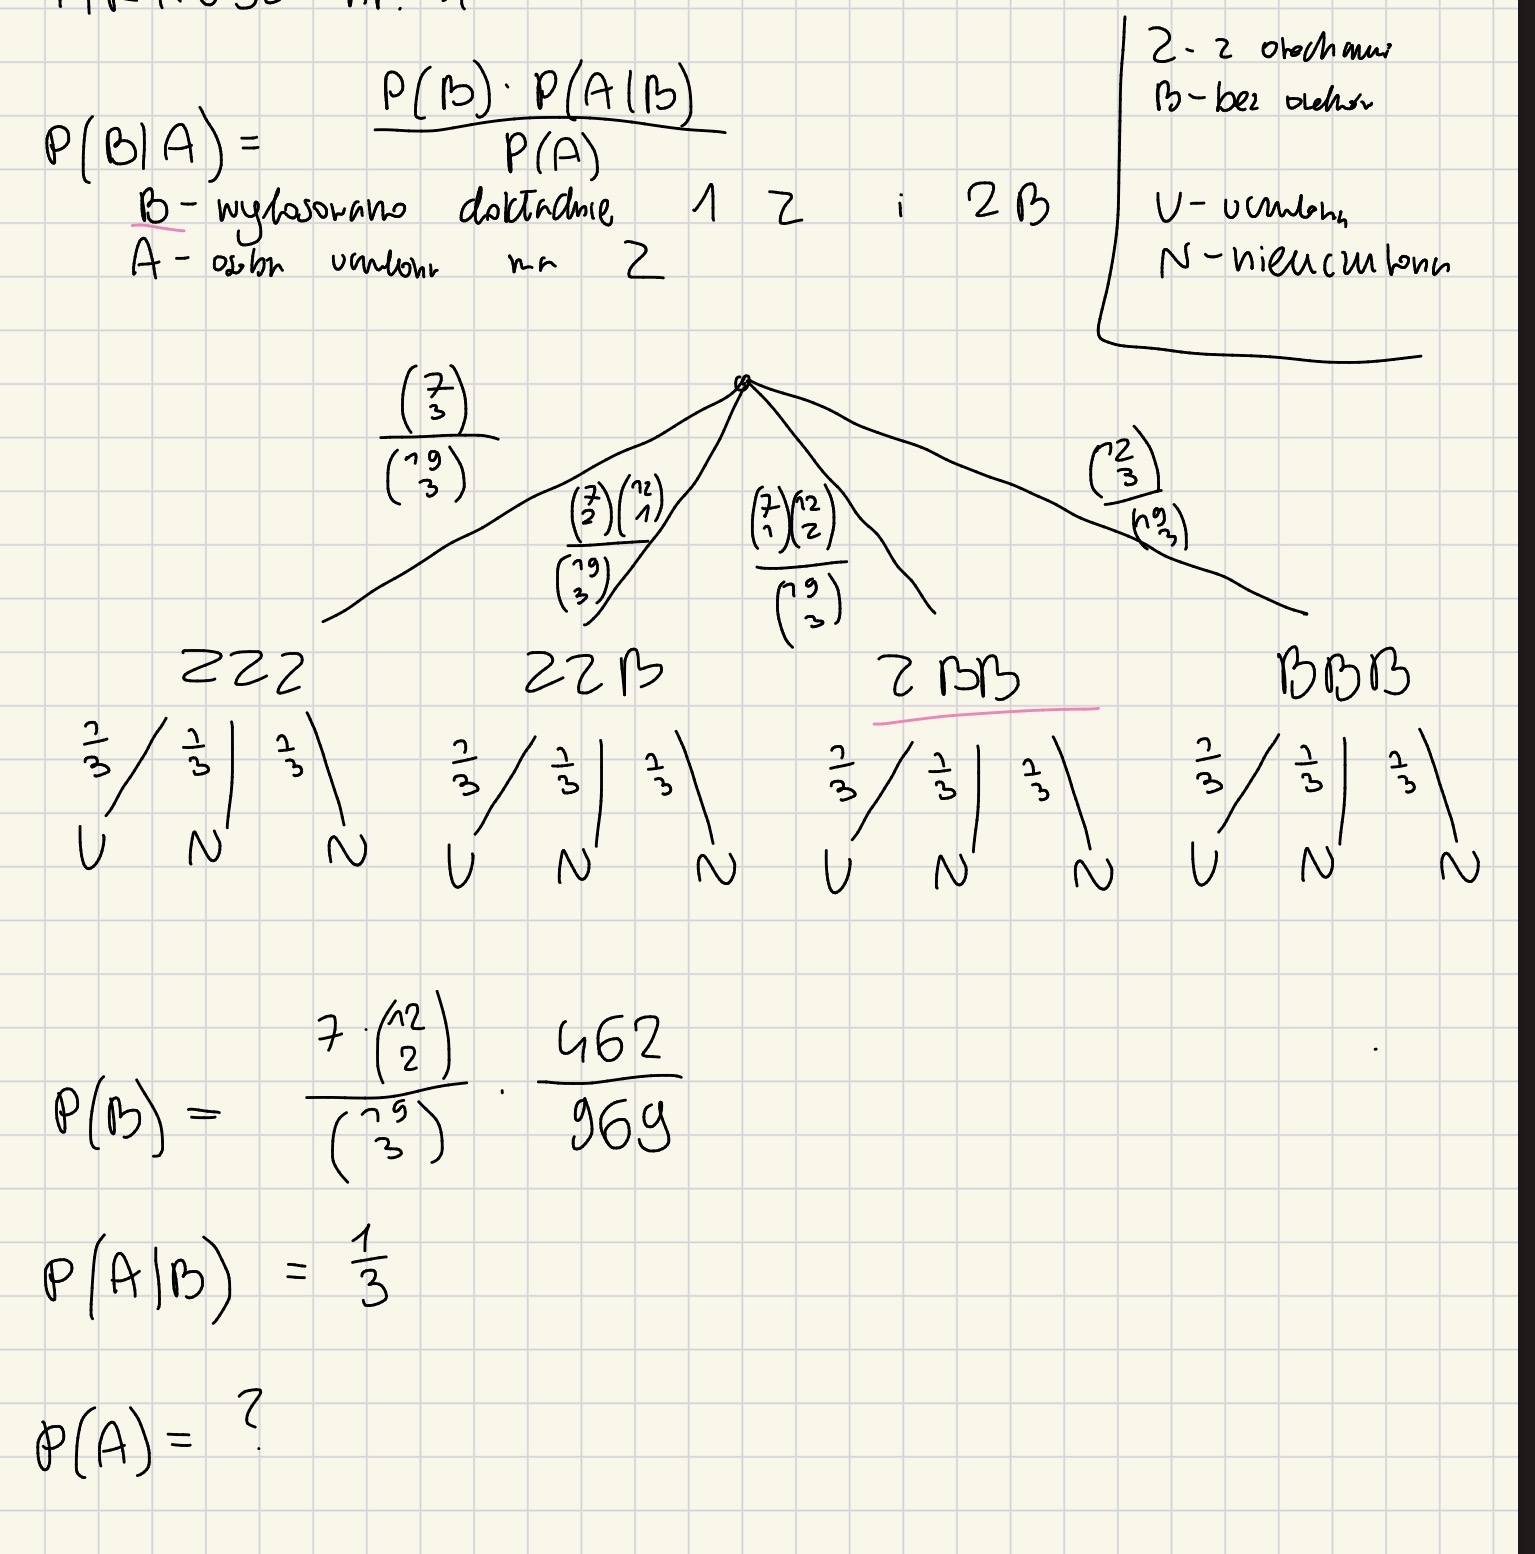 P(B|A) = P(B) · P(A|B) / P(A)
B - wylosowano dokładnie 1 Z i 2B
A - osoba uczulona na Z
Z - z orzechami
B - bez orzechów
U - uczulona
N - nieuczulona
(7 3) / (19 3)
(7 2)(12 1) / (19 3)
(7 1)(12 2) / (19 3)
(12 3) / (19 3)
ZZZ ZZB ZBB BBB
1/3 1/3 1/3 1/3 1/3 1/3 1/3 1/3 1/3 1/3 1/3 1/3
U N N U N N U N N U N N
P(B) = 7 · (12 2) / (19 3) · 462 / 969
P(A|B) = 1/3
P(A) = ?